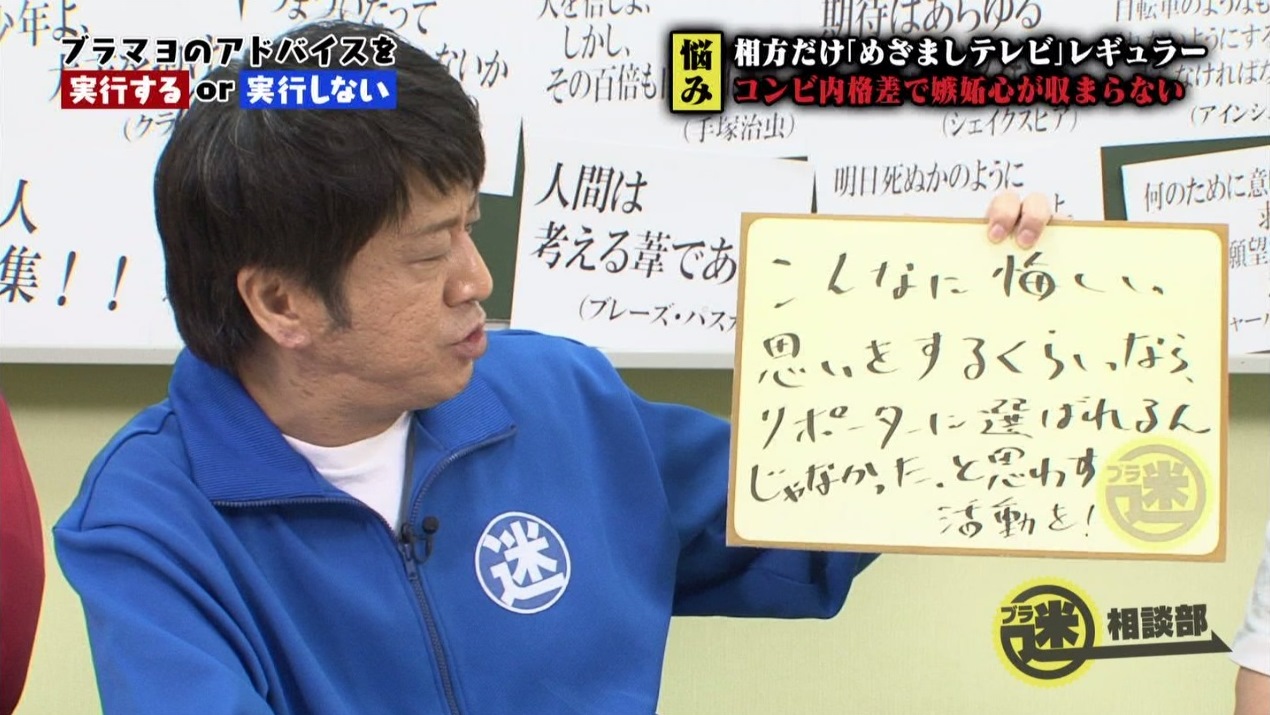 ブラマヨのアドバイスを
実行する or 実行しない
悩み
相方だけ「めざましテレビ」レギュラー
コンビ内格差で嫉妬心が収まらない
しかし、
その百倍も
(手塚治虫)
期待はあらゆる
(シェイクスピア)
自転車のような
なければ
(アインシ
人
集!!
人間は
考える葦であ
(ブレーズ・パスカ
明日死ぬかのように
何のために
願望
こんなに悔しい
思いをするくらいなら、
リポーターに選ばれるん
じゃなかった。と思わす
活動を!
ブラ
迷
迷
ブラ
迷
相談部